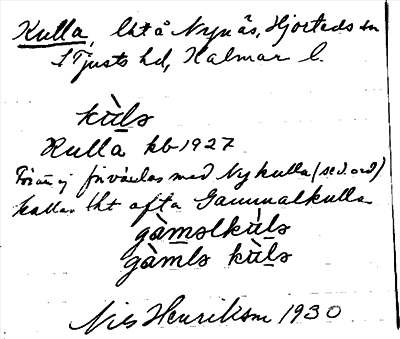 Kulla, lht å Nynäs, Hjorteds sn
S Tjusts hd, Kalmar l.
kùlə
Kulla kb 1927
För att ej förväxlas med Nykulla (se d. ord)
kallas lht ofta Gammalkulla
gàməlkùlə
gàmlə kùlə
Nils Henrikson 1930